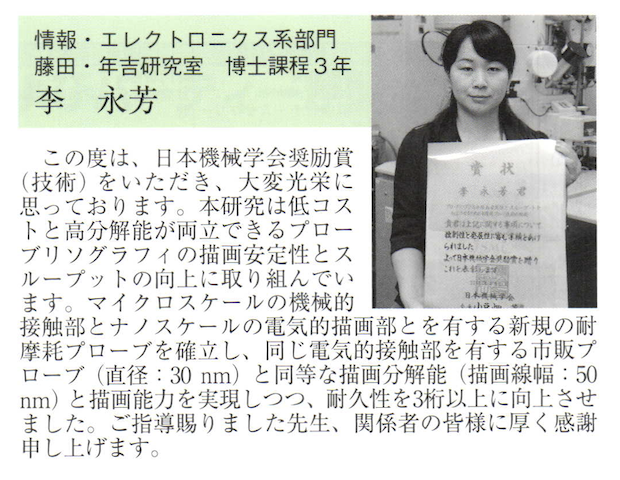 情報・エレクトロニクス系部門
藤田・年吉研究室　博士課程３年
李　永芳
この度は、日本機械学会奨励賞
（技術）をいただき、大変光栄に
思っております。本研究は低コス
トと高分解能が両立できるプロー
ブリソグラフィの描画安定性とス
ループットの向上に取り組んでい
ます。マイクロスケールの機械的
接触部とナノスケールの電気的描画部とを有する新規の耐
摩耗プローブを確立し、同じ電気的接触部を有する市販プ
ローブ（直径：30 nm）と同等な描画分解能（描画線幅：50
nm）と描画能力を実現しつつ、耐久性を3桁以上に向上させ
ました。ご指導賜りました先生、関係者の皆様に厚く感謝
申し上げます。
賞状
李永芳君
日本機械学会